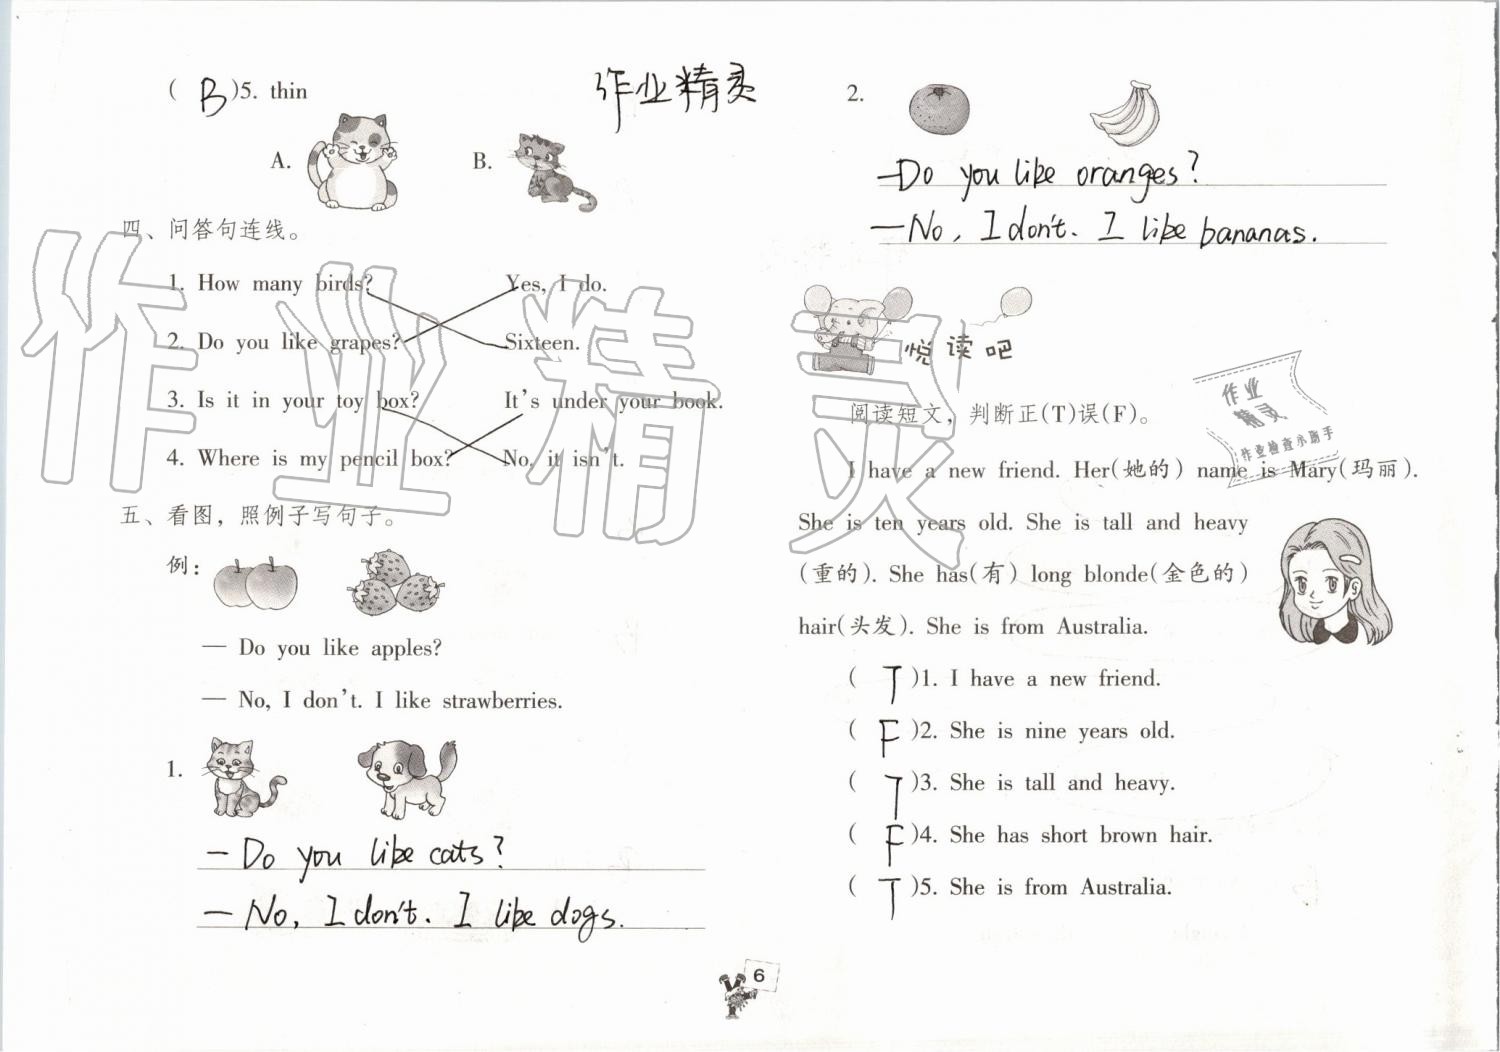 ( B )5. thin
作业精灵
A.
B.
四、问答句连线。
1. How many birds? Yes, I do.
2. Do you like grapes? Sixteen.
3. Is it in your toy box? It's under your book.
4. Where is my pencil box? No, it isn't.
五、看图，照例子写句子。
例：
— Do you like apples?
— No, I don't. I like strawberries.
1.
— Do you like cats?
— No, I don't. I like dogs.
2.
— Do you like oranges?
— No, I don't. I like bananas.
悦读吧
阅读短文，判断正(T)误(F)。
I have a new friend. Her(她的) name is Mary(玛丽).
She is ten years old. She is tall and heavy
(重的). She has(有) long blonde(金色的)
hair(头发). She is from Australia.
( T )1. I have a new friend.
( F )2. She is nine years old.
( T )3. She is tall and heavy.
( F )4. She has short brown hair.
( T )5. She is from Australia.
作业
精灵
作业检查小助手
作业精灵
6